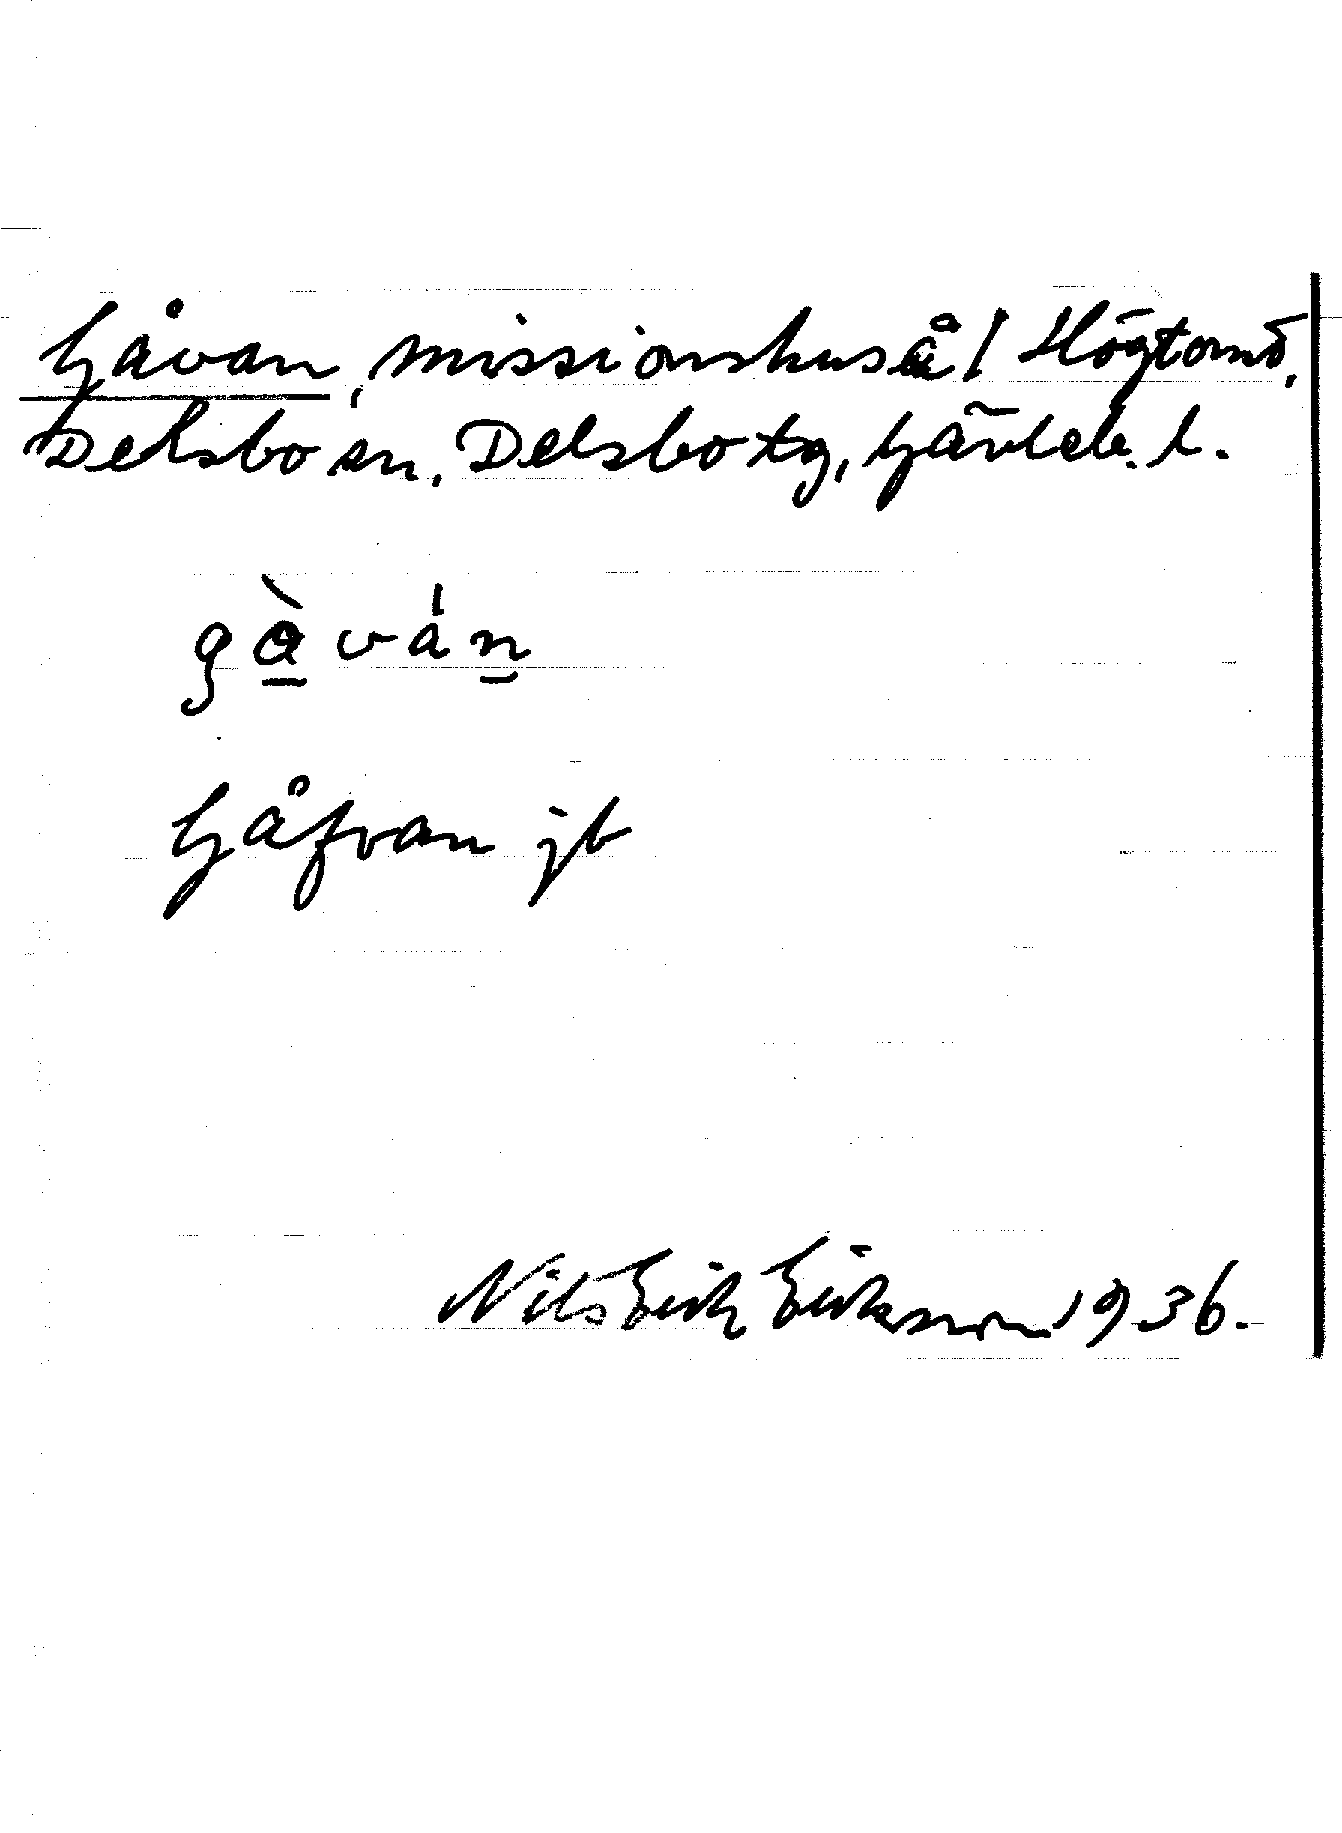 Gåvan, missionshus å l Högtomt,
Delsbo sn, Delsbo tg, Gävleb. l.
gàván
Gåfvan jb
Nils Erik Eriksson 1936.